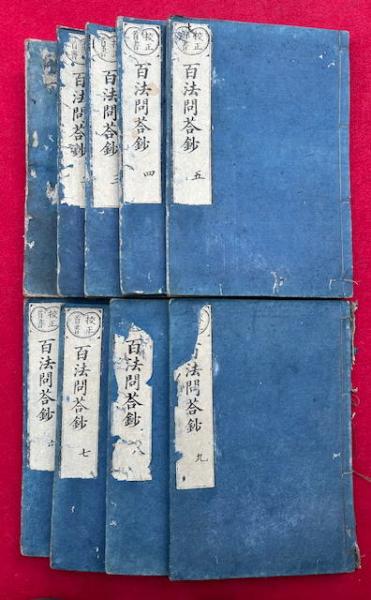 首書
百法問荅鈔
首書
百法問荅鈔 三
校正
首書
百法問荅鈔 四
校正
首書
百法問荅鈔 五
校正
首書
百法問荅鈔 六
校正
首書
百法問荅鈔 七
百法問荅鈔 八
法問荅鈔 九